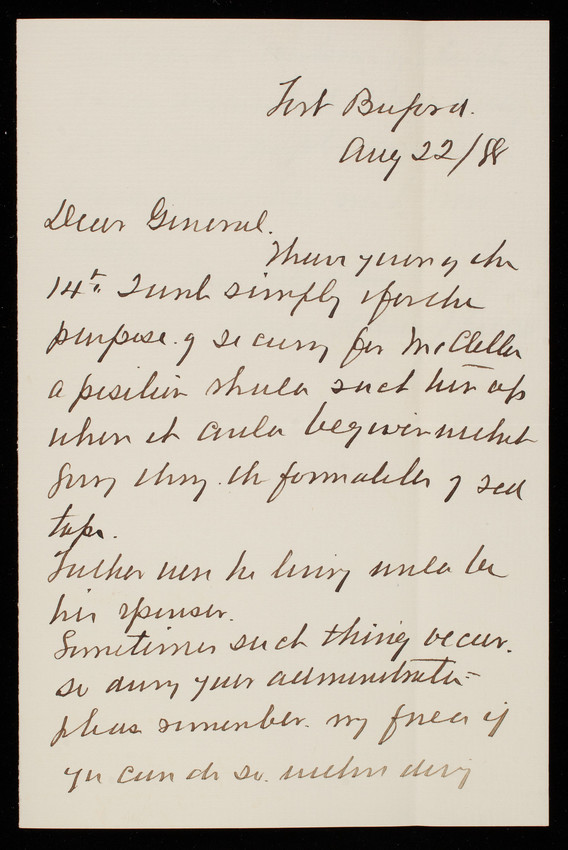 Fort Buford.
Aug 22/88
Dear General.
I have yours of the
14th. I wrote simply for the
purpose of securing for McClellan
a position should such turn up
when it could be given without
going through the formalities of red
tape.
Father were he living would be
his sponsor.
Sometimes such things occur.
so during your administration
please remember my friend if
you can do so. without doing